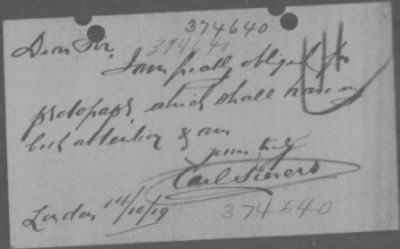 374640
Dear Sir,
374640
I am greatly obliged for
photopaph, which shall have my
best attention & am
yours truly
Carl Sievers
London 14/10/19
374640